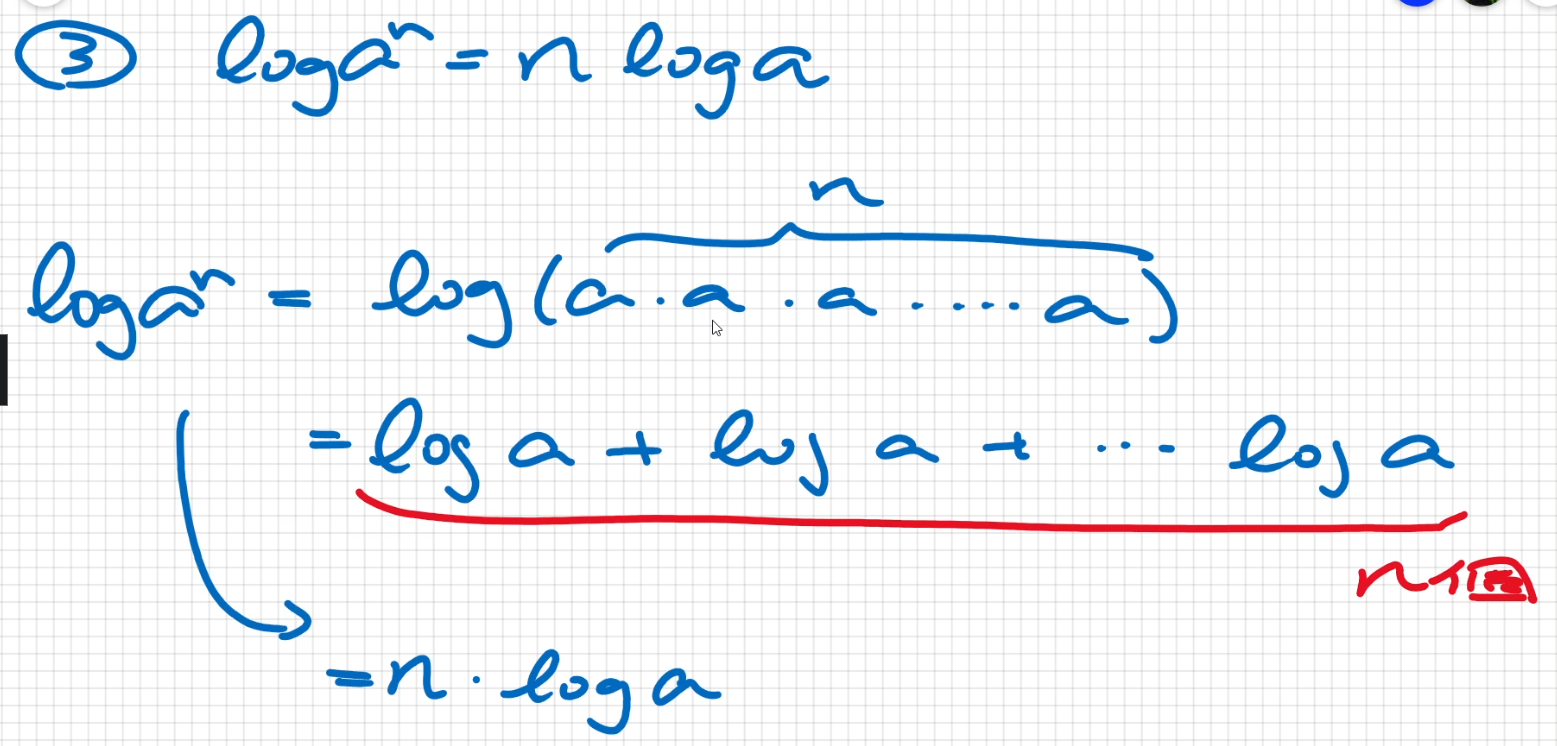 ③ log aⁿ = n log a
n
log aⁿ = log(a · a · a ····· a)
= log a + log a + ··· log a
n個
= n · log a